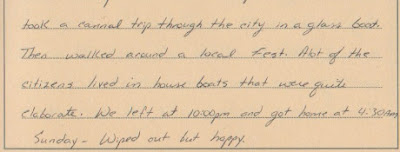 took a cannal trip through the city in a glass boat.
Then walked around a local Fest. Alot of the
citizens lived in house boats that were quite
elaborate. We left at 10:00pm and got home at 4:30am
Sunday - Wiped out but happy.